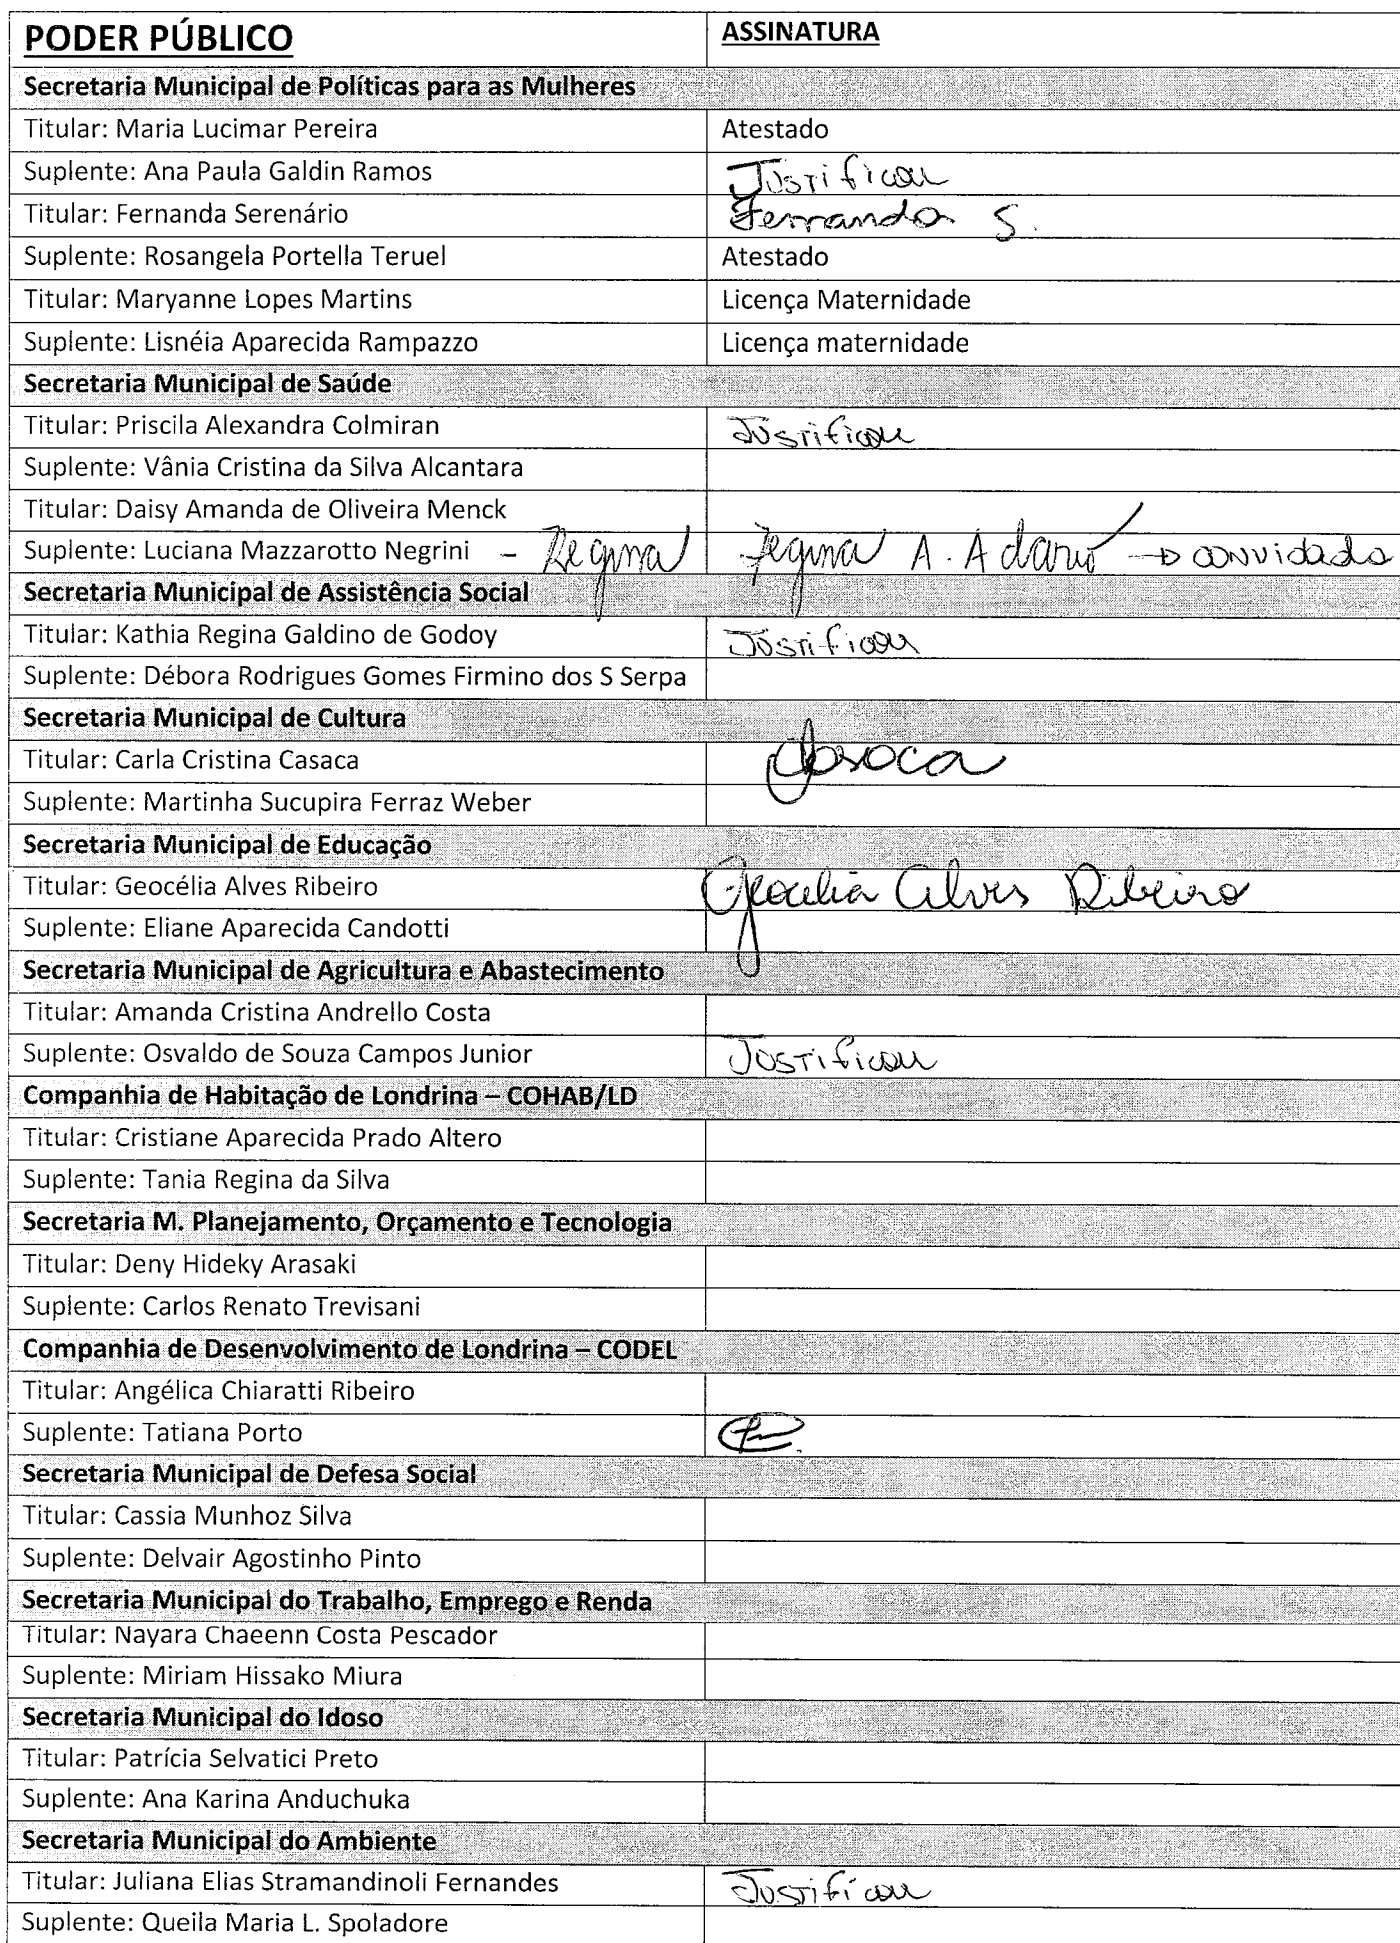 PODER PÚBLICO ASSINATURA
Secretaria Municipal de Políticas para as Mulheres
Titular: Maria Lucimar Pereira Atestado
Suplente: Ana Paula Galdin Ramos Justificou
Titular: Fernanda Serenário Fernanda S.
Suplente: Rosangela Portella Teruel Atestado
Titular: Maryanne Lopes Martins Licença Maternidade
Suplente: Lisnéia Aparecida Rampazzo Licença maternidade
Secretaria Municipal de Saúde
Titular: Priscila Alexandra Colmiran Justificou
Suplente: Vânia Cristina da Silva Alcantara
Titular: Daisy Amanda de Oliveira Menck
Suplente: Luciana Mazzarotto Negrini – Regina Regina A. → convidada
Secretaria Municipal de Assistência Social
Titular: Kathia Regina Galdino de Godoy Justificou
Suplente: Débora Rodrigues Gomes Firmino dos S Serpa
Secretaria Municipal de Cultura
Titular: Carla Cristina Casaca
Suplente: Martinha Sucupira Ferraz Weber
Secretaria Municipal de Educação
Titular: Geocélia Alves Ribeiro Geocelia Alves Ribeiro
Suplente: Eliane Aparecida Candotti
Secretaria Municipal de Agricultura e Abastecimento
Titular: Amanda Cristina Andrello Costa
Suplente: Osvaldo de Souza Campos Junior Justificou
Companhia de Habitação de Londrina – COHAB/LD
Titular: Cristiane Aparecida Prado Altero
Suplente: Tania Regina da Silva
Secretaria M. Planejamento, Orçamento e Tecnologia
Titular: Deny Hideky Arasaki
Suplente: Carlos Renato Trevisani
Companhia de Desenvolvimento de Londrina – CODEL
Titular: Angélica Chiaratti Ribeiro
Suplente: Tatiana Porto
Secretaria Municipal de Defesa Social
Titular: Cassia Munhoz Silva
Suplente: Delvair Agostinho Pinto
Secretaria Municipal do Trabalho, Emprego e Renda
Titular: Nayara Chaeenn Costa Pescador
Suplente: Miriam Hissako Miura
Secretaria Municipal do Idoso
Titular: Patrícia Selvatici Preto
Suplente: Ana Karina Anduchuka
Secretaria Municipal do Ambiente
Titular: Juliana Elias Stramandinoli Fernandes Justificou
Suplente: Queila Maria L. Spoladore